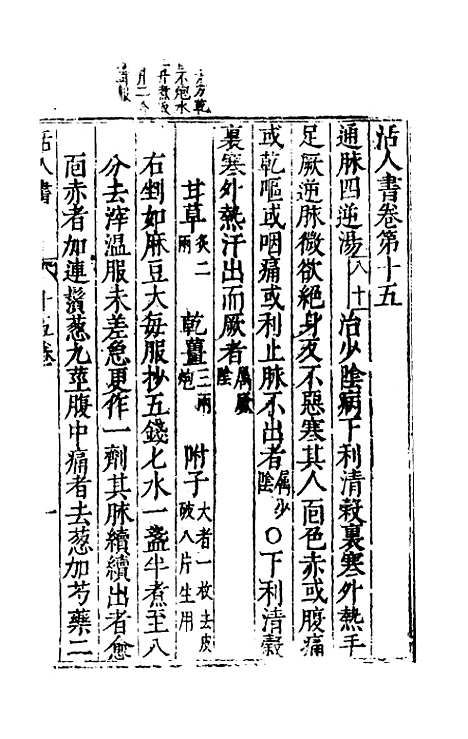 活人書卷第十五
通脉四逆湯 八十 治少陰病下利清穀裏寒外熱手
足厥逆脉微欲絶身反不惡寒其人面色赤或腹痛
或乾嘔或咽痛或利止脉不出者 屬少陰 ○下利清穀
裏寒外熱汗出而厥者 屬厥陰
甘草 炙二兩 乾薑 三兩炮 附子 大者一枚去皮破八片生用
右剉如麻豆大每服抄五錢匕水一盞半煮至八
分去滓溫服未差急更作一劑其脉續續出者愈
面赤者加連鬚葱九莖腹中痛者去葱加芍藥二
活人書
十五卷
一